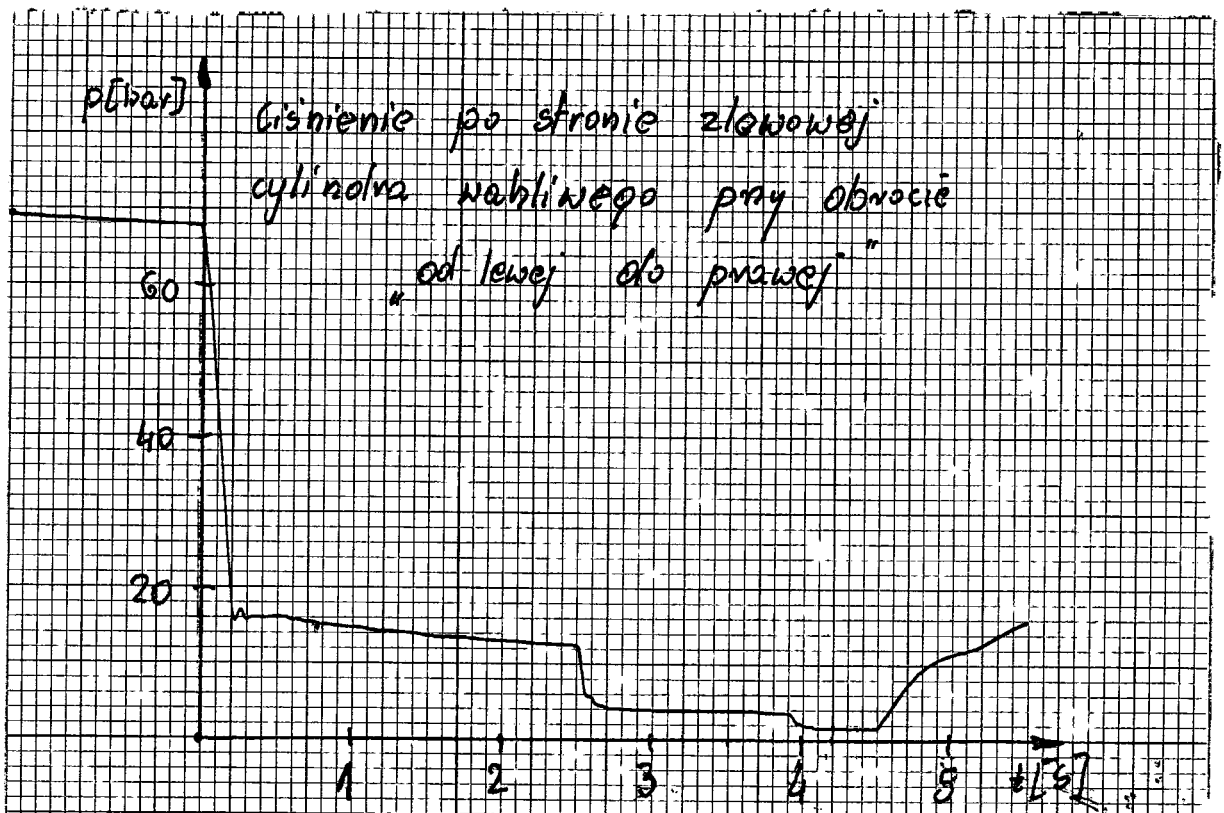 p[bar]
Ciśnienie po stronie zlewowej
cylindra wahliwego przy obrocie
„od lewej do prawej”
60
40
20
1
2
3
4
5
t[s]